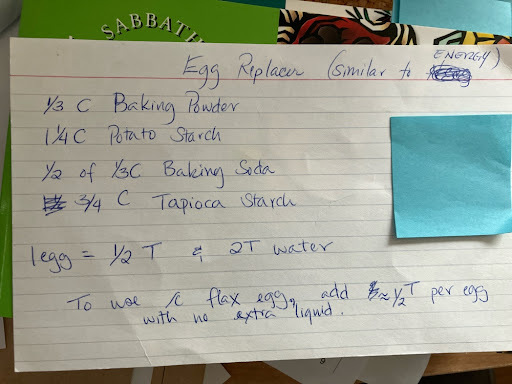 SABBATH
Egg Replacer (similar to ENERGY)
1/3 C Baking Powder
1 1/4 C Potato Starch
1/2 of 1/3 C Baking Soda
3/4 C Tapioca Starch
1 egg = 1/2 T & 2T water
To use /c flax egg, add ≈ 1/2 T per egg
with no extra liquid.